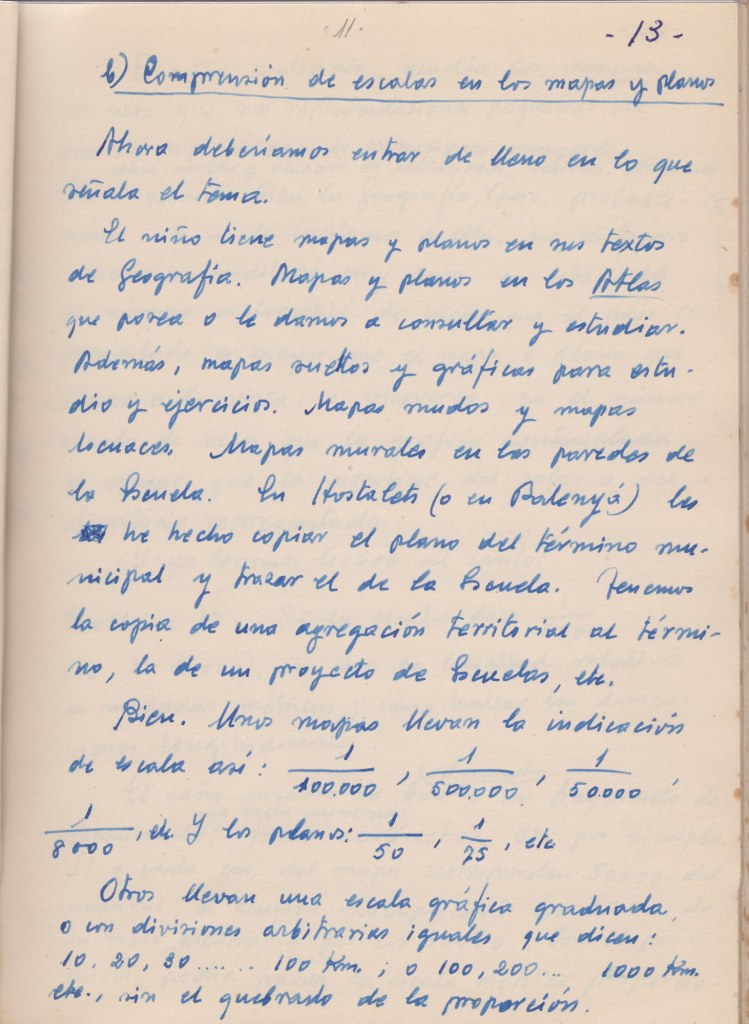 11
- 13 -
b) Comprensión de escalas en los mapas y planos
Ahora deberíamos entrar de lleno en lo que
señala el tema.
El niño tiene mapas y planos en sus textos
de Geografía. Mapas y planos en los Atlas
que posea o le damos a consultar y estudiar.
Además, mapas sueltos y gráficas para estu-
dio y ejercicios. Mapas mudos y mapas
locuaces. Mapas murales en las paredes de
la Escuela. En Hostalets (o en Balenyá) les
he hecho copiar el plano del término mu-
nicipal y trazar el de la Escuela. Tenemos
la copia de una agregación territorial al térmi-
no, la de un proyecto de Escuelas, etc.
Bien. Unos mapas llevan la indicación
de escala así: 1/100.000, 1/500.000, 1/50.000,
1/8000, etc. Y los planos: 1/50, 1/25, etc
Otros llevan una escala gráfica graduada,
o con divisiones arbitrarias iguales que dicen:
10, 20, 30 ..... .. 100 Km.; o 100, 200 ... 1000 Km.
etc., sin el quebrado de la proporción.